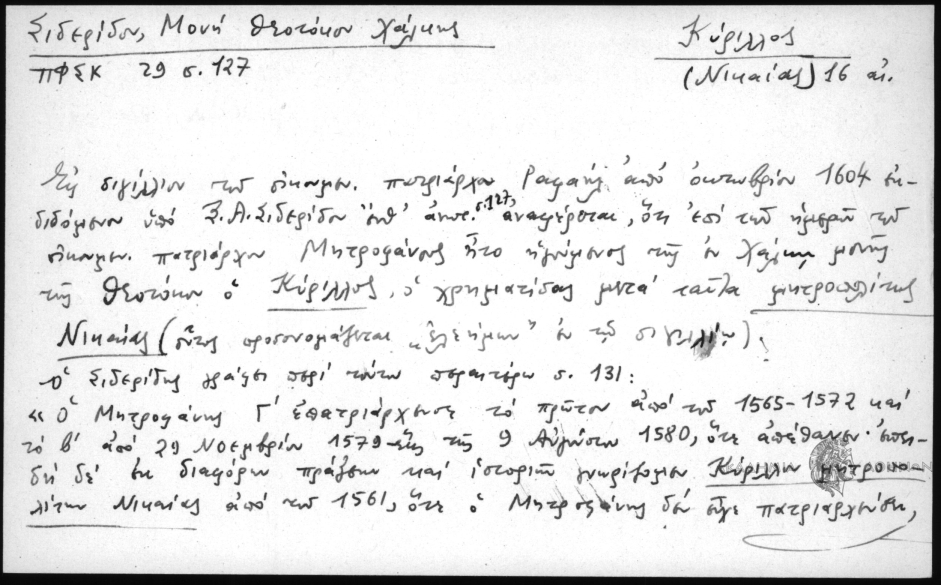 Σιδερίδου, Μονή Θεοτόκου Χάλκης
Κύριλλος
ΠΦΣΚ 29 σ. 127
(Νικαίας) 16 αι.
Εἰς σιγίλλιον τοῦ οἰκουμεν. πατριάρχου Ραφαήλ ἀπό ὀκτωβρίου 1604 ἐκ-
διδόμενον ὑπό Ξ.Α. Σιδερίδου ἐνθ' ἀνωτ. σ. 127, ἀναφέρεται, ὅτι ἐπί τῶν ἡμερῶν τοῦ
οἰκουμεν. πατριάρχου Μητροφάνους ἦτο ἡγούμενος τῆς ἐν Χάλκῃ μονῆς
τῆς Θεοτόκου ὁ Κύριλλος, ὁ χρηματίσας μετά ταῦτα μητροπολίτης
Νικαίας (οὗτος προσονομάζεται "ἐλεήμων" ἐν τῷ σιγιλλίῳ).
Ὁ Σιδερίδης γράφει περί τούτου περαιτέρω σ. 131:
«Ὁ Μητροφάνης Γ' ἐπατριάρχευσε τό πρῶτον ἀπό τοῦ 1565-1572 καί
τό β' ἀπό 29 Νοεμβρίου 1579 ἕως τῆς 9 Αὐγούστου 1580, ὅτε ἀπέθανεν· ἐπει-
δή δέ ἐκ διαφόρων πράξεων καί ἱστοριῶν γνωρίζομεν Κύριλλον μητροπο-
λίτην Νικαίας ἀπό τοῦ 1561, ὅτε ὁ Μητροφάνης δέν εἶχε πατριαρχεύσει,